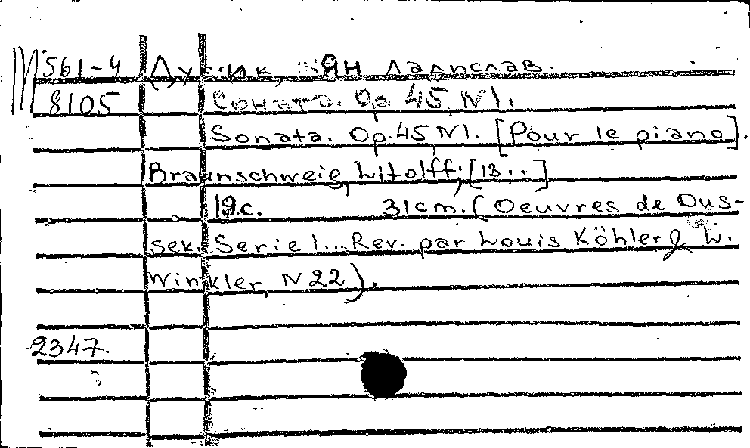 М 561-4 Дусик, Ян Ладислав.
8105 Соната. Op. 45, N1.
Sonata. Op. 45, N1. [Pour le piano].
Braunschweig, Litolff, [18..]
19c. 31cm. (Oeuvres de Dus-
sek. Serie 1... Rev. par Louis Köhler & W.
Winkler, N 22).
2347